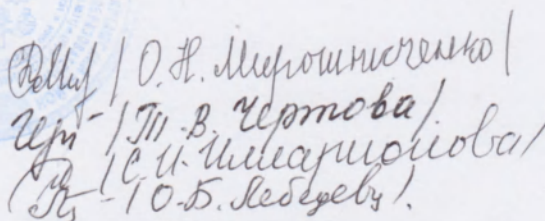 / О. Н. Мирошниченко /
/ Т. В. Чертова /
/ С. И. Илларионова /
/ О. Б. Лебедева /